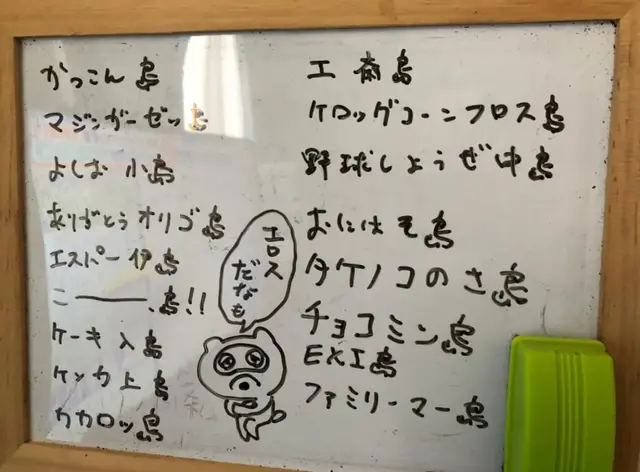 かっこん島
マジンガーゼッ島
よしお小島
ありがとうオリゴ島
エスパー伊島
こー、島!!
ケーキ入島
ケッカ上島
カカロッ島
エロス
だなも
工斎島
ケロッグコーンフロス島
野球しようぜ中島
おにはそ島
タケノコのさ島
チョコミン島
EXI島
ファミリーマー島